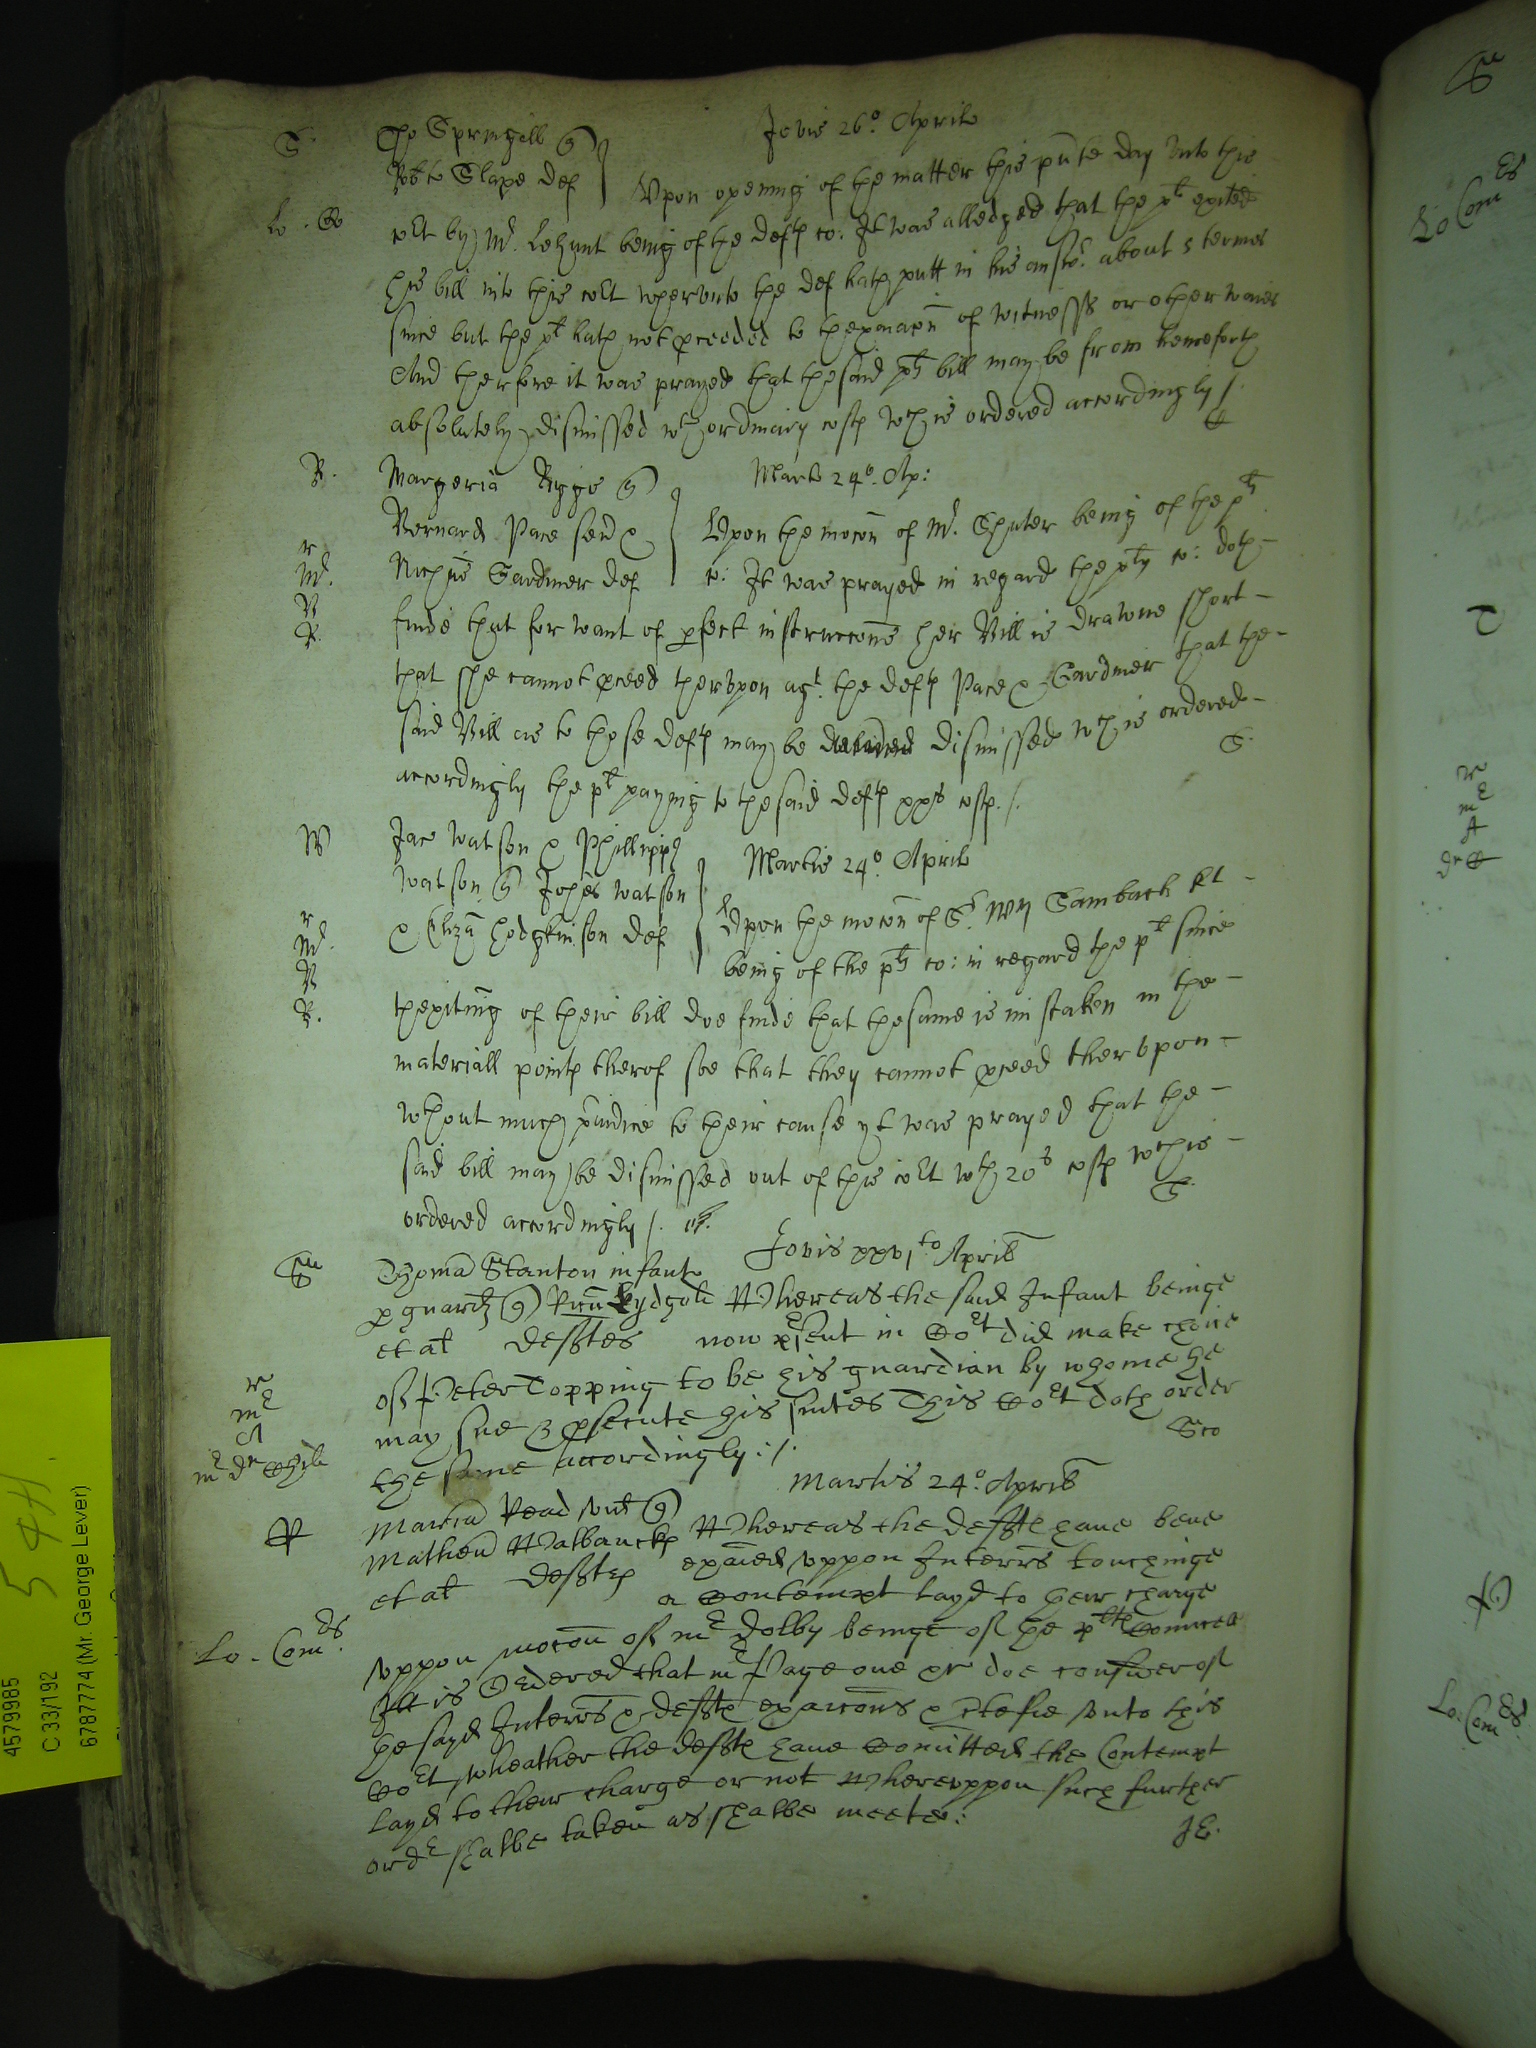 S. Tho Springall q
Jovis 26o. Aprilis
Robto Slape def
Upon opening of the matter this pnte day unto this
Lo. Co
cort by Mr. Lehunt being of the deftes co: It was alledged that the plt exited
his bill into this cort wherunto the def hath putt in his answr. about 5 termes
since but the plt hath not pceeded to thexaiacon of witnesses or otherwaies
And therfore it was prayed that the said plts bill may be from henceforth
absolutely dismissed wth ordinary costes wch is ordered accordingly /.
R. Margeria Riggs q
Martis 24o. Ap:
Bernard Pace sen &
Upon the mocon of Mr. Shuter being of the plts
r
Mr. Nichus Gardiner def
co: It was prayed in regard the plts co: doth
B
R.
finde that for want of pfect instruccons her Bill is drawne short
that she cannot pceed therupon agt. the deftes Pace & Gardiner that the
said Bill as to those deftes may be dismissed wch is ordered
S.
accordingly the plt paying to the said deftes xxs costes. /.
W Jac Watson & Phillippus
Martis 24o Aprilis
Watson q Johes Watson
& Eliza Hodgkinson def
Upon the mocon of Sr. Wm Sambach kt
r
Mr.
being of the plts co: in regard the plt since
B
R.
thexiting of their bill doe finde that the same is mistaken in the
materiall pointes therof soe that they cannot pceed therupon
wthout much piudice to their cause yt was prayed that the
said bill may be dismissed out of this cort wth 20s costes wch is
ordered accordingly /.
Jovis xxvito Aprilis
Thoma Stanton infant
p guard q
Whereas the said Infant beinge
et al deftes now psent in Cort did make choice
of Peter Topping to be his guardian by whome he
r
mr
may sue & psecute his suites This Cort doth order
the same accordingly :/.
Martis 24o. Aprilis
R Maria Read vid q
Mathew Walbancke
Whereas the deftes have bene
et al deftes
exaied uppon Interrs touchinge
a Contempt layd to their charge
Lo. Comds.
uppon mocon of mr Dolby beinge of the pltes Councell
It is Ordered that mr Page one &c doe consider of
the sayd Interrs & deftes exaicons & ctefie unto this
Cort wheather the deftes have Comitted the Contempt
layd to their charge or not Whereuppon such further
ordr shalbe taken as shalbe meete:
4579985
C 33/192
6787774 (Mr. George Lever)
Lo Comes
r
mr
A
Lo: Comds.